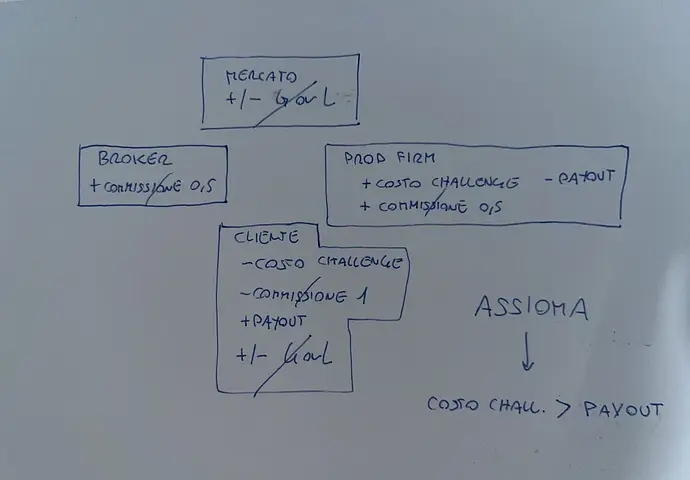 MERCATO
+/- G or L
BROKER
+ COMMISSIONE 0,5
PROP FIRM
+ COSTO CHALLENGE - PAYOUT
+ COMMISSIONE 0,5
CLIENTE
- COSTO CHALLENGE
- COMMISSIONE 1
+ PAYOUT
+/- G or L
ASSIOMA
COSTO CHALL. > PAYOUT